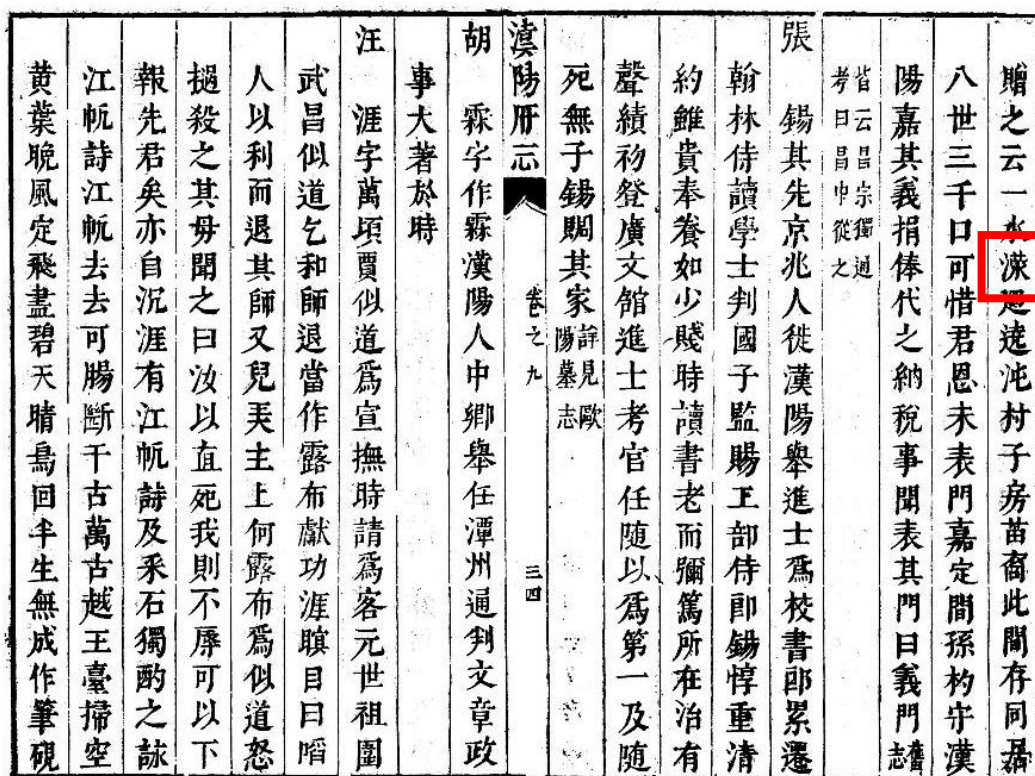 贈之云一水濴迴遶沌村子房苗裔此間存同居
八世三千口可惜君恩未表門嘉定間孫杓守漢
陽嘉其義捐俸代之納稅事聞表其門曰義門舊志
皆云昌宗獨通考曰昌中從之
張
錫其先京兆人徙漢陽舉進士爲校書郎累遷
翰林侍讀學士判國子監賜工部侍郎錫惇重清
約雖貴奉養如少賤時讀書老而彌篤所在治有
聲績初登廣文館進士考官任隨以爲第一及隨
死無子錫賙其家詳見歐陽墓志
漢陽府志
卷之九
三四
胡
霖字作霖漢陽人中鄉舉任潭州通判文章政
事大著於時
汪
涯字萬頃賈似道爲宣撫時請爲客元世祖圍
武昌似道乞和師退當作露布獻功涯瞋目曰啗
人以利而退其師又兒芺主上何露布爲似道怒
撾殺之其母聞之曰汝以直死我則不辱可以下
報先君矣亦自沉涯有江帆詩及采石獨酌之詠
江帆詩江帆去去可腸斷千古萬古越王臺掃空
黄葉晚風定飛盡碧天晴鳥回半生無成作筆硯